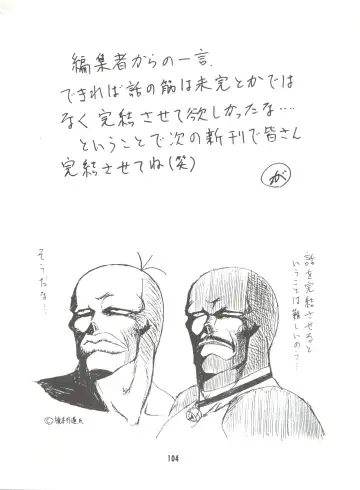 編集者からの一言.
できれば話の筋は未完とかでは
なく完結させて欲しかったな…
ということで次の新刊で皆さん
完結させてね(笑)
が
話を完結させると
いうことは難しいのう…
そうだな…
104